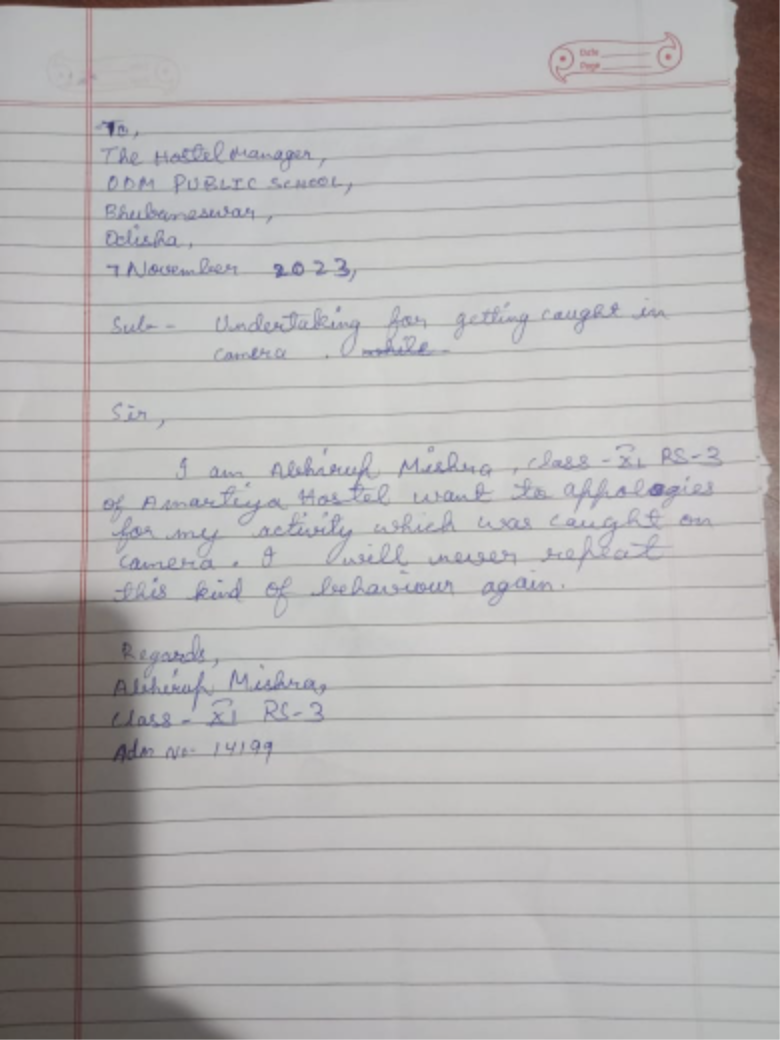 Date
Page
To,
The Hostel Manager,
ODM PUBLIC SCHOOL,
Bhubaneswar,
Odisha,
7 November 2023,
Sub- - Undertaking for getting caught in
camera . while
Sir,
I am Abhirup Mishra, class - XI RS-3
of Amartiya Hostel want to appologies
for my activity which was caught on
camera. I will never repeat
this kind of behaviour again.
Regards,
Abhirup Mishra,
Class - XI RS-3
Adm No- 14199